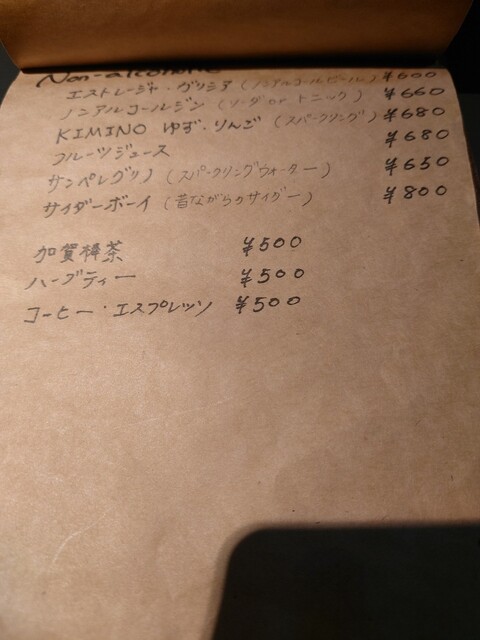 Non-alcoholic
エストレージャ・ガリシア (ノンアルコールビール) ¥600
ノンアルコールジン (ソーダ or トニック) ¥660
KIMINO ゆず・りんご (スパークリング) ¥680
フルーツジュース ¥680
サンペレグリノ (スパークリングウォーター) ¥650
サイダーボーイ (昔ながらのサイダー) ¥800
加賀棒茶 ¥500
ハーブティー ¥500
コーヒー・エスプレッソ ¥500